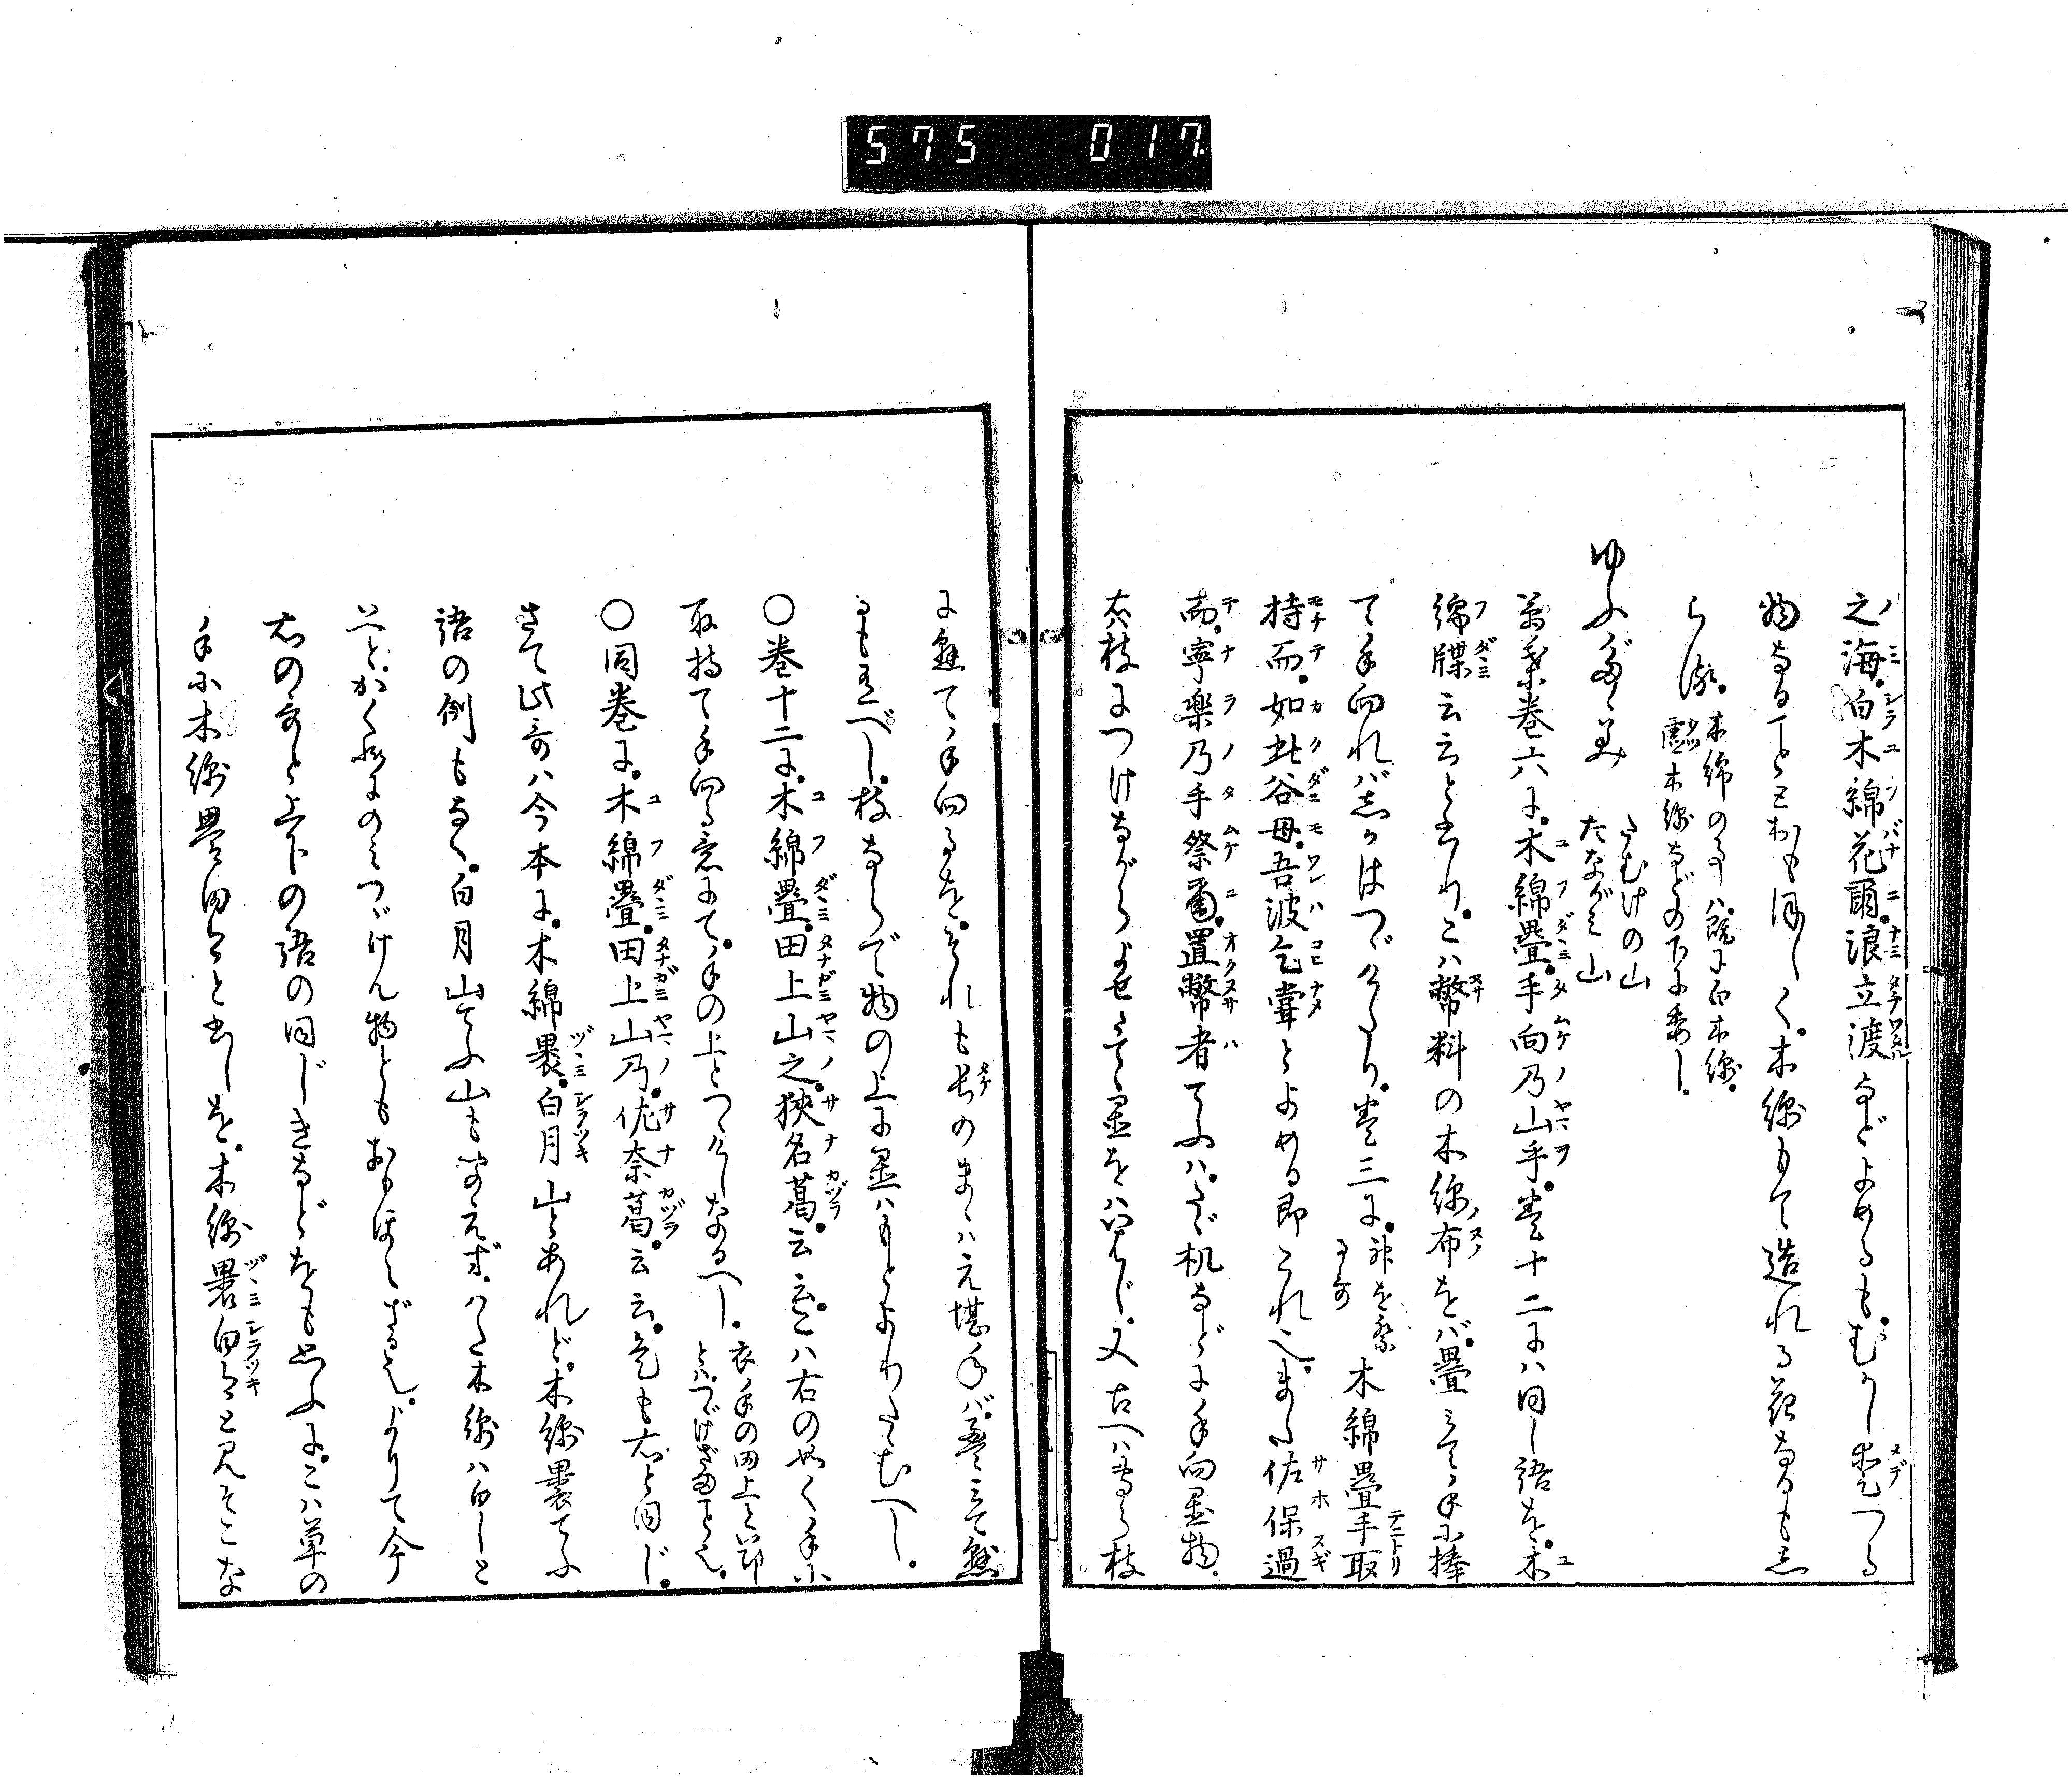 575 017
之海。白木綿花爾。浪立渡などよめるも。むかし愛つる
物なることもおもほしく。木綿もて造れる花なるも志
らる。木綿の事ハ既に白木綿。木綿などの下に委し。
ゆふだゝみ たむけの山 たながミ山
萬葉巻六に。木綿疊。手向乃山乎。巻十二にハ同し語を。木
綿牒云云と書り。こハ幣料の木綿布をバ。疊ミて手に捧
て手向れバ志かはつゞけたり。巻三に。神を祭る哥 木綿疊手取
持而。如此谷母。吾波乞甞とよめる即これ也。また佐保過
而。寧楽乃手祭爾。置幣者てふハ。たゞ机などに手向置物。
右枝につけながらよせたて置をハいはじ。又古へハ
に懸て手向るを。それも長のまゝハえ堪ねバ。疊ミて懸
るもすべし。枝ならで物の上に置ハもとよりたゝむへし。
〇巻十二に。木綿疊。田上山之。狭名葛。云云。こハ右の如く手に
取持て手向る意にて。手の上とつゞけしなるへし。衣手の田上といふ
〇同巻に。木綿疊。田上山乃。佐奈葛。云云。是も右と同じ。
さて此哥ハ今本に。木綿褁。白月山とあれど。木綿褁てふ
語の例もなく。白月山てふ山も聞えず。ハた木綿ハ白しと
いへど。かく様にのミつゞけん物ともおもほえざる也。よりて今
右の哥と上下の語の同じきなどをも思ふに。こハ草の
手に木綿疊田上と書しを。木綿褁白月と見そこな